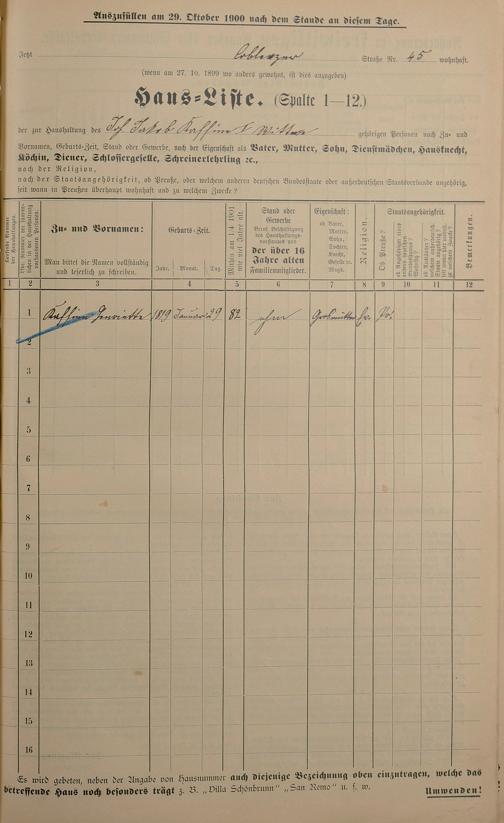 Auszufüllen am 29. Oktober 1900 nach dem Stande an diesem Tage.
Jetzt Coblenzer Straße Nr. 45 wohnhaft.
(wenn am 27. 10. 1899 wo anders gewohnt, ist dies anzugeben)
Haus-Liste. (Spalte 1—12.)
der zur Haushaltung des Joh Jakob Witwe gehörigen Personen nach Zu- und
Vornamen, Geburts-Zeit, Stand oder Gewerbe, nach der Eigenschaft als Vater, Mutter, Sohn, Dienstmädchen, Hausknecht,
Köchin, Diener, Schlossergeselle, Schreinerlehrling ꝛc.,
nach der Religion,
nach der Staatsangehörigkeit, ob Preuße, oder welchem anderen deutschen Bundesstaate oder außerdeutschen Staatsverbande angehörig,
seit wann in Preußen überhaupt wohnhaft und zu welchem Zwecke?
Zu- und Vornamen:
Man bittet die Namen vollständig
und leserlich zu schreiben.
Geburts-Zeit.
Jahr. Monat. Tag.
Mithin am 1/4 1901
wie viel Jahre alt.
Stand oder
Gewerbe
der über 16
Jahre alten
Familienmitglieder.
Eigenschaft:
ob Vater,
Mutter,
Sohn,
Tochter,
Knecht,
Geselle,
Magd.
Religion.
Staatsangehörigkeit.
Ob Preuße?
Bemerkungen.
1 2 3 4 5 6 7 8 9 10 11 12
1 Henriette 1819 Januar 29 82 ohne Großmutter Ev.
2
3
4
5
6
7
8
9
10
11
12
13
14
15
16
Es wird gebeten, neben der Angabe von Hausnummer auch diejenige Bezeichnung oben einzutragen, welche das
betreffende Haus noch besonders trägt z. B. „Villa Schönbrunn" „San Remo" u. s. w. Umwenden!